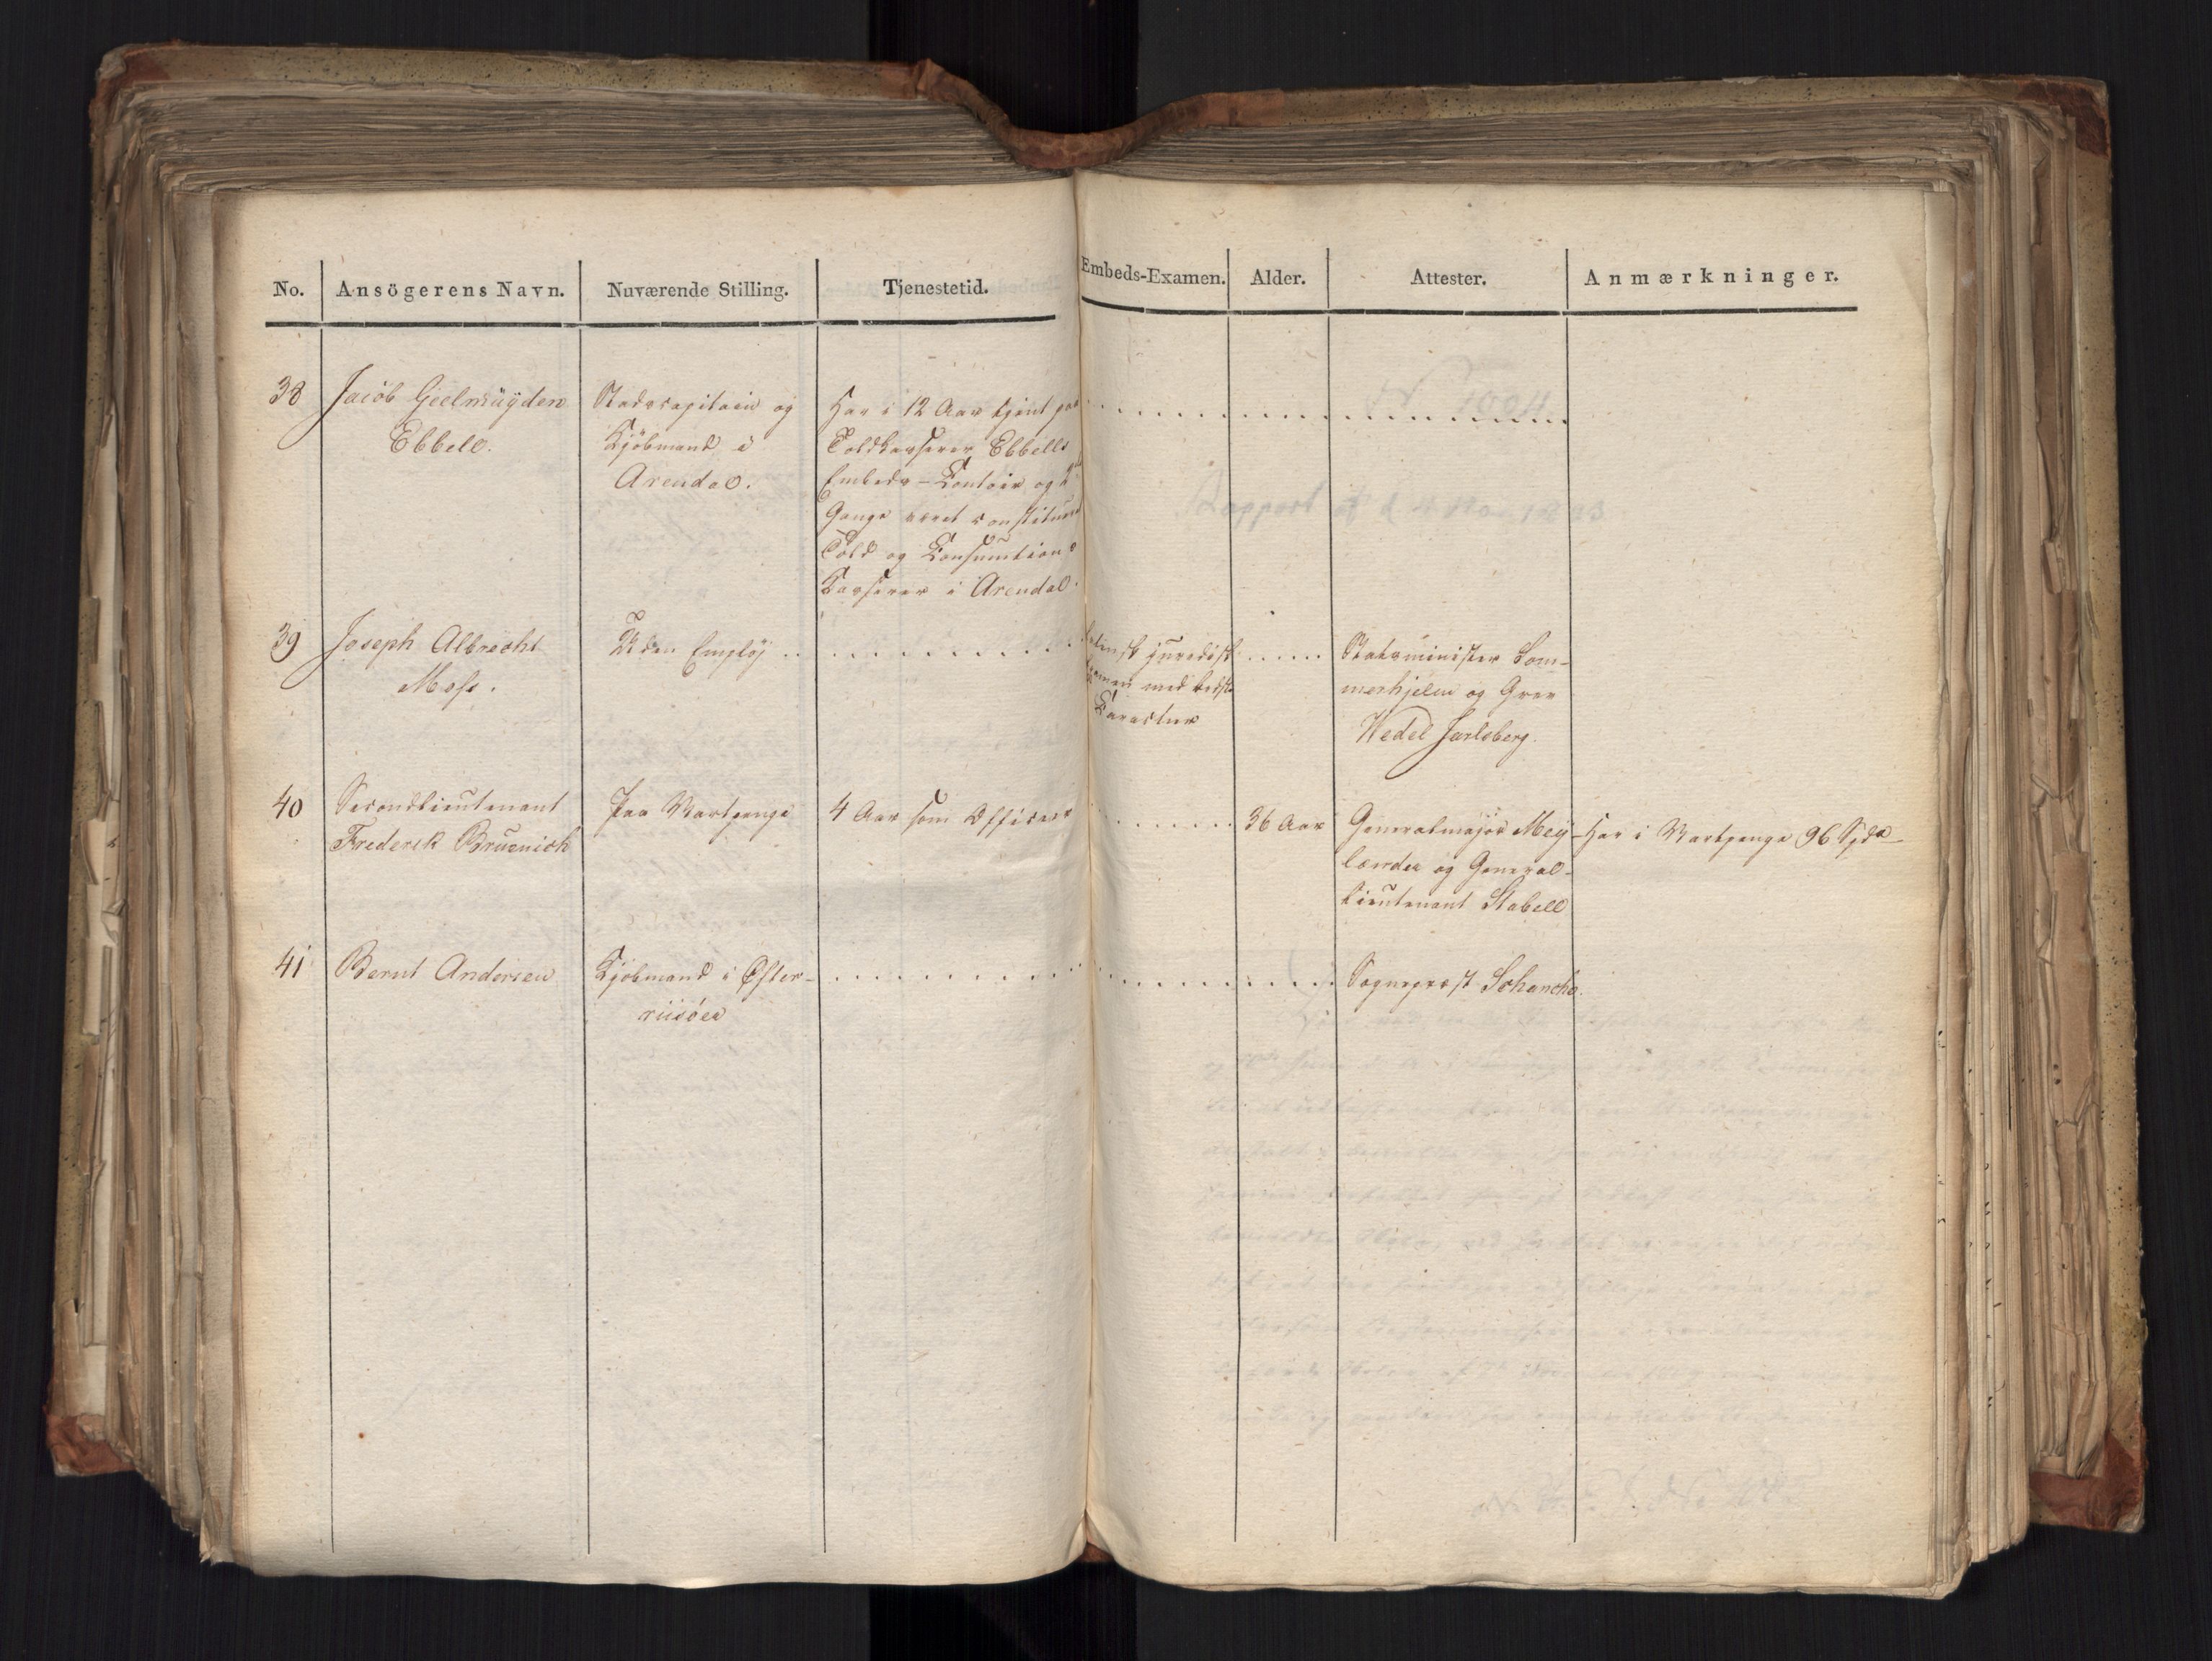 No. Ansögerens Navn. Nuværende Stilling. Tjenestetid. Embeds-Examen. Alder. Attester. Anmærkninger.
38 Jacob Geelmüyden
Ebbell.
Stadscapitain og
Kjöbmand i
Arendal.
Har i 12 Aar tjent paa
Toldkasserer Ebbells
Embeds-Contoir og 2
Gange været constitueret
Told og Consumtions
Kasserer i Arendal.
39 Joseph Albrecht
Moss.
Uden Employ
Latinsk juridisk
Examen med bedste
Caracteer
Statsminister Som-
merhjelm og Grev
Wedel Jarlsberg.
40 Secondlieutenant
Frederik Bruenich
Paa Vartpenge
4 Aar som Officeer
36 Aar
Generalmajor Mey-
lænder og General-
lieutenant Stabell
Har i Vartpenge 96 Spd
41 Bernt Andersen
Kjöbmand i Øster-
riisöer
Sognepræst Schanche.